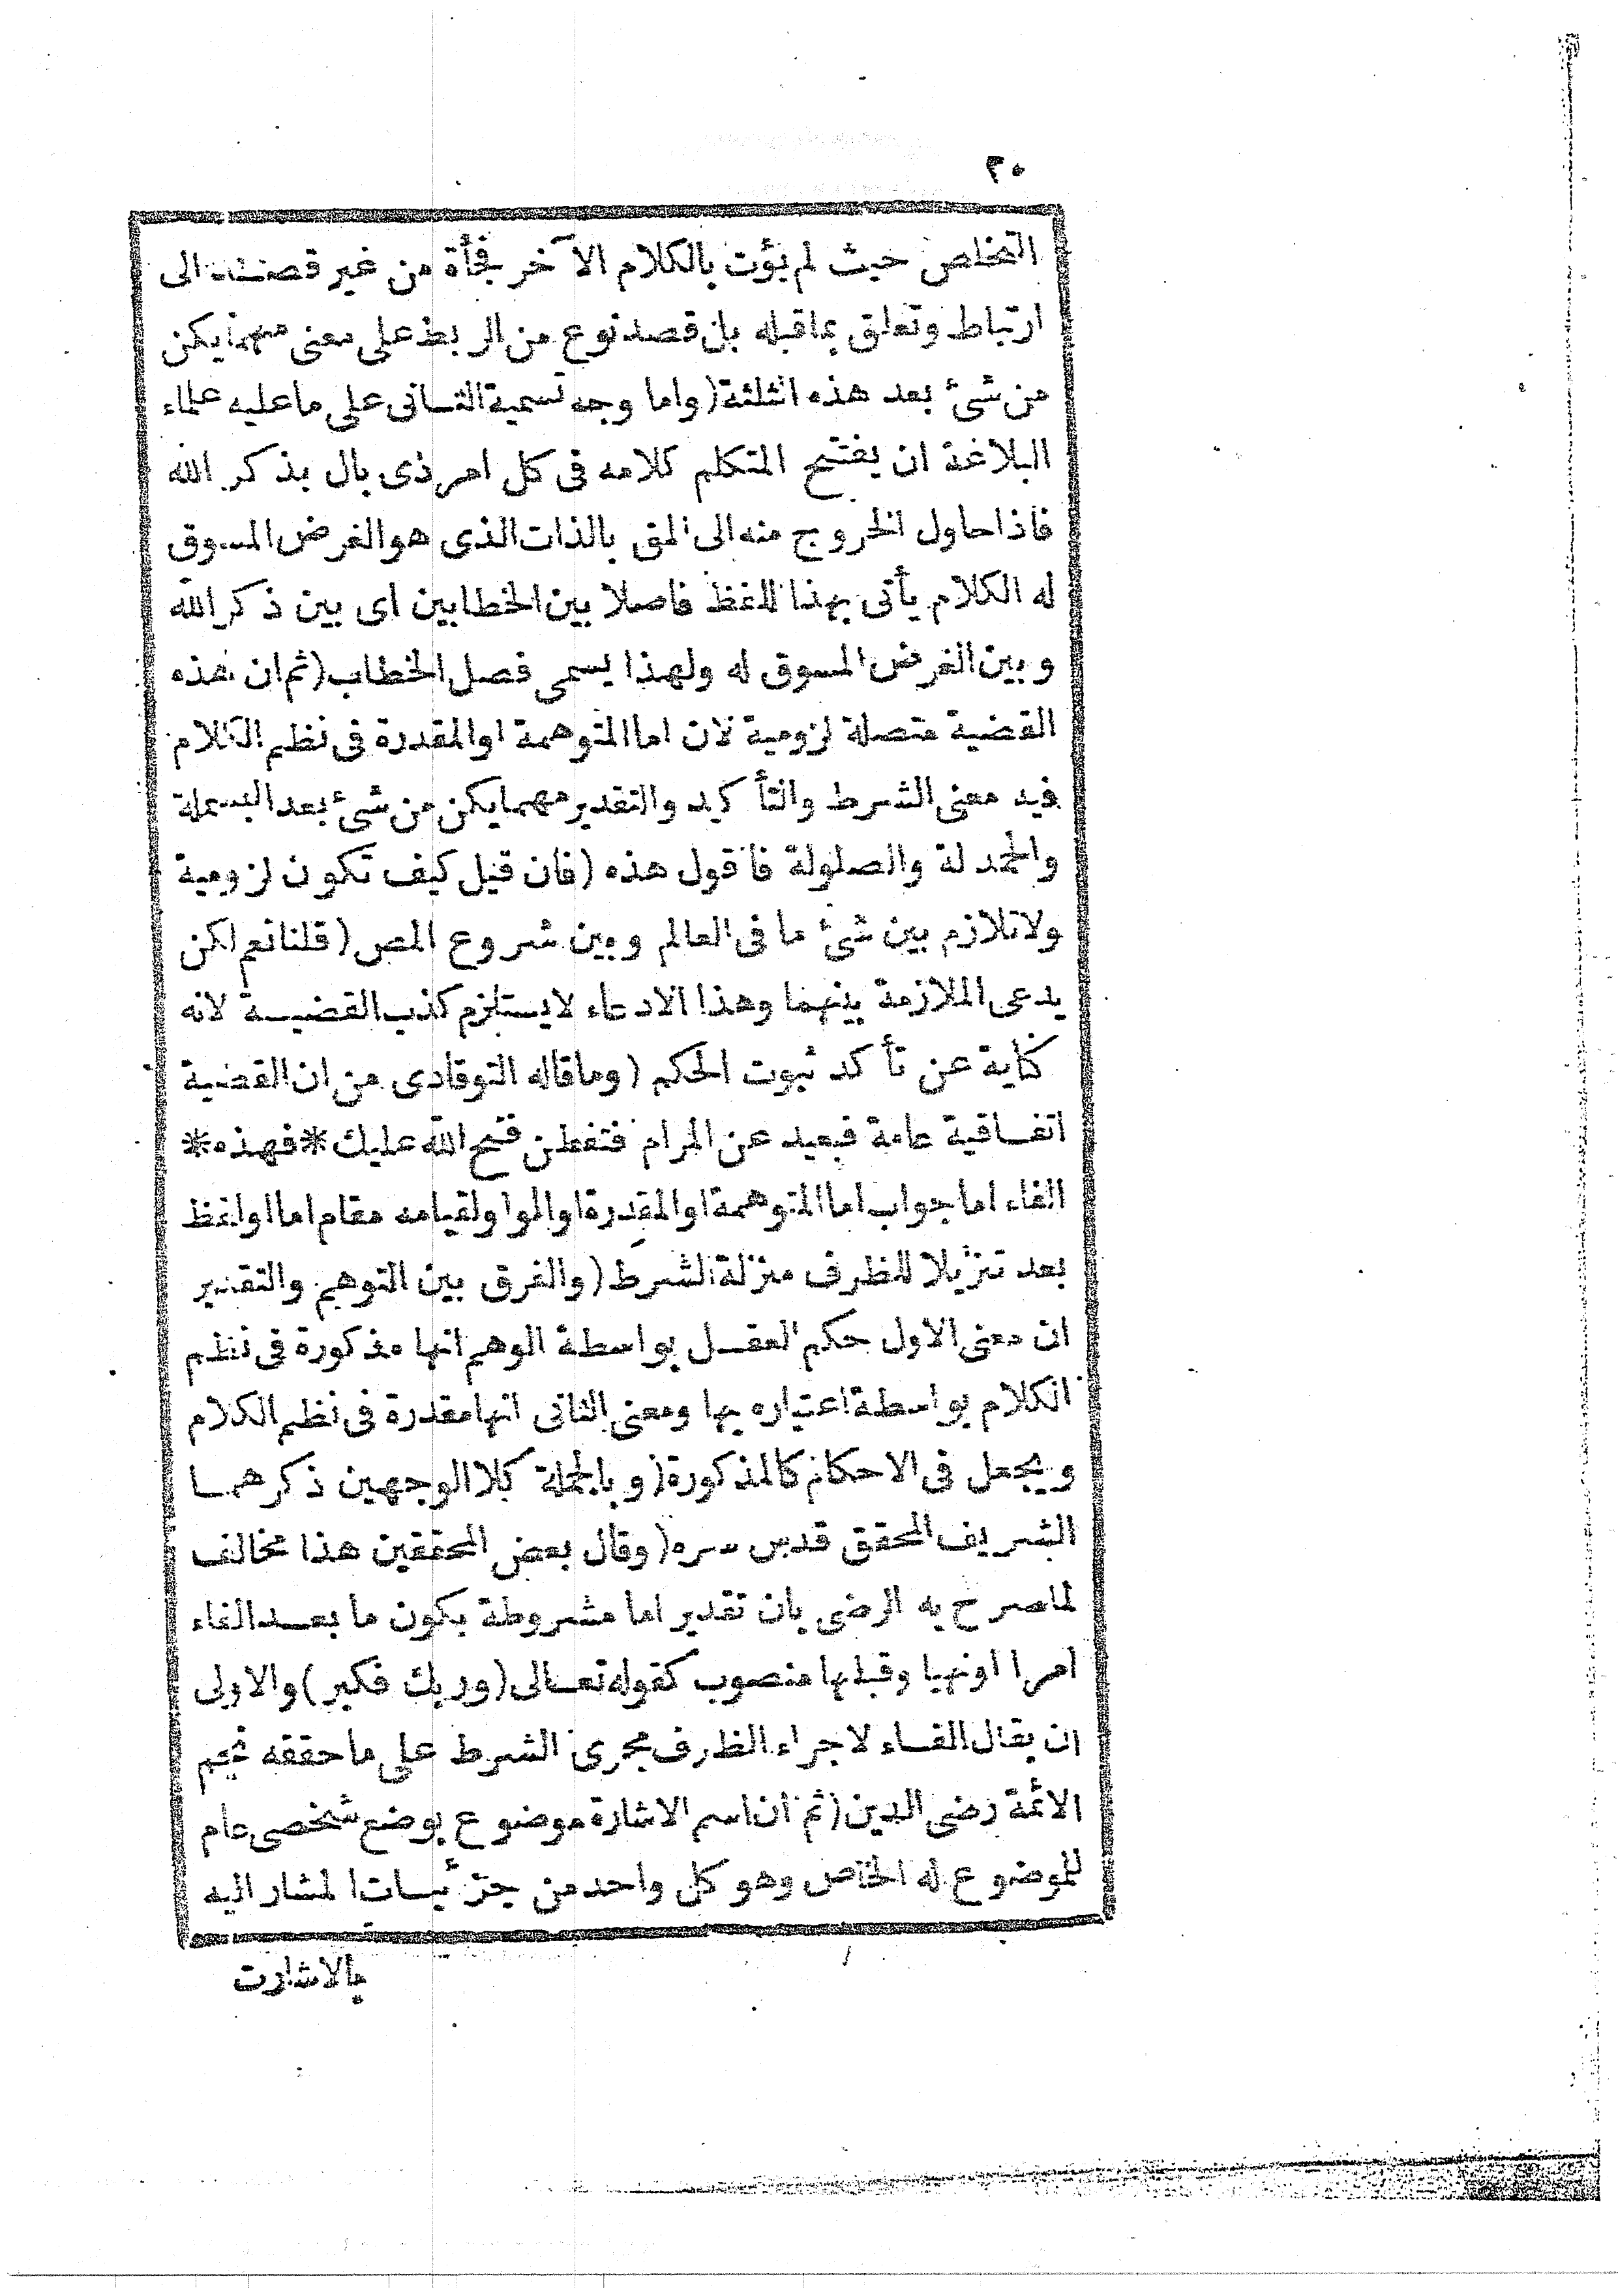 ٢٠
التخلص حيث لم يؤت بالكلام الآخر فجأة من غير قصد الى
ارتباط وتعلق بما قبله بل قصد نوع من الربط على معنى مهما يكن
من شئ بعد هذه الثلثة (واما وجه تسمية الثانى على ما عليه علماء
البلاغة ان يفتتح المتكلم كلامه فى كل امر ذى بال بذكر الله
فاذا حاول الخروج منه الى المق بالذات الذى هو الغرض المسوق
له الكلام يأتى بهذا اللفظ فاصلا بين الخطابين اى بين ذكر الله
وبين الغرض المسوق له ولهذا يسمى فصل الخطاب (ثم ان هذه
القضية متصلة لزومية لان اما المتوهمة او المقدرة فى نظم الكلام
فيه معنى الشرط والتأكيد والتقدير مهما يكن من شئ بعد البسملة
والحمدلة والصلولة فاقول هذه (فان قيل كيف تكون لزومية
ولا تلازم بين شئ ما فى العالم وبين شروع المص (قلنا نعم لكن
يدعى الملازمة بينهما وهذا الادعاء لايستلزم كذب القضية لانه
كناية عن تأكد ثبوت الحكم (وما قاله التوقادى من ان القضية
اتفاقية عامة فبعيد عن المرام فتفطن فتح الله عليك * فهذه *
الفاء اما جواب اما المتوهمة او المقدرة او الواو لقيامه مقام اما او لفظ
بعد تنزيلا للظرف منزلة الشرط (والفرق بين التوهم والتقدير
ان معنى الاول حكم العقل بواسطة الوهم انها مذكورة فى نظم
الكلام بواسطة اعتياره بها ومعنى الثانى انها مقدرة فى نظم الكلام
ويجعل فى الاحكام كالمذكورة (وبالجملة كلا الوجهين ذكرهما
الشريف المحقق قدس سره (وقال بعض المحققين هذا مخالف
لما صرح به الرضى بان تقدير اما مشروطة بكون ما بعد الفاء
امرا او نهيا وقبلها منصوب كقوله تعالى (وربك فكبر) والاولى
ان يقال الفاء لاجراء الظرف مجرى الشرط على ما حققه نجم
الائمة رضى الدين (ثم ان اسم الاشارة موضوع بوضع شخصى عام
للموضوع له الخاص وهو كل واحد من جزئيات المشار اليه
بالاشارت